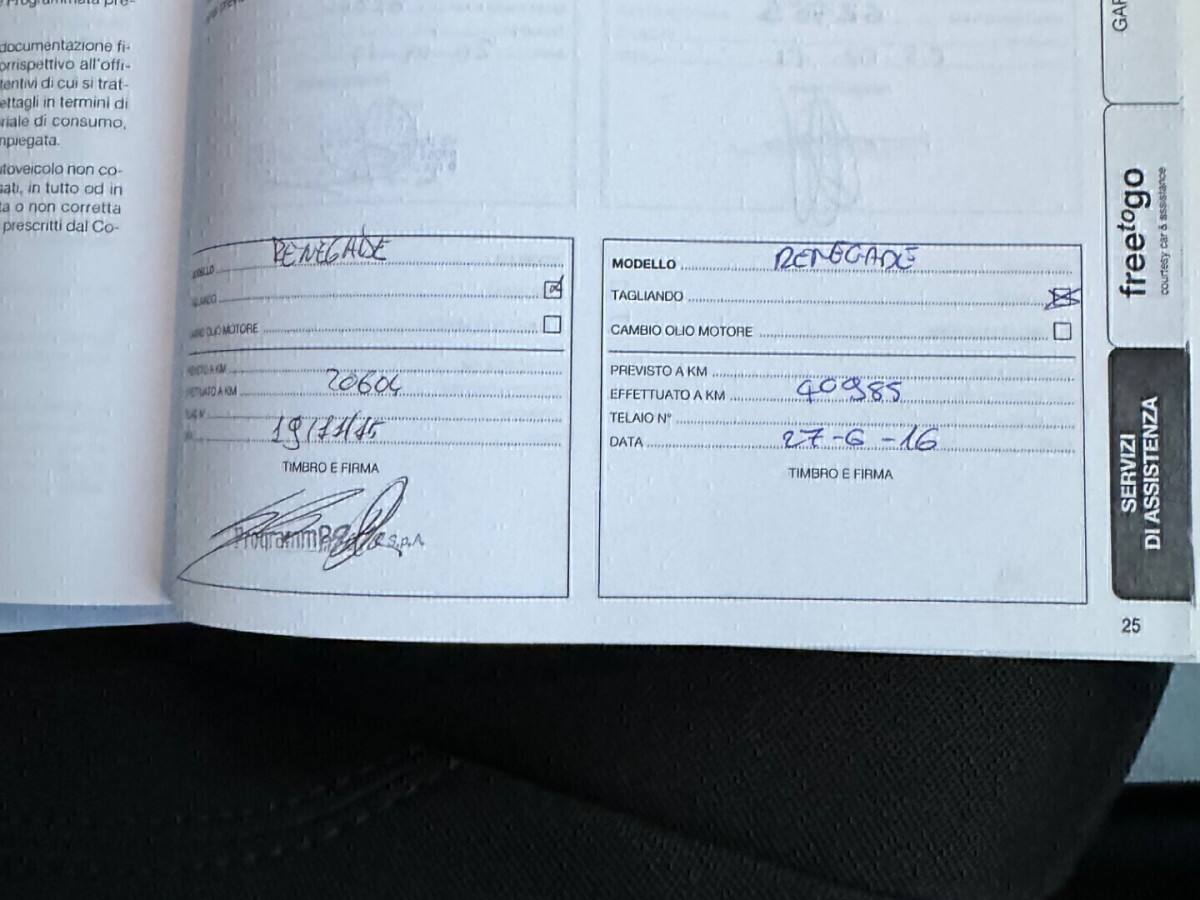 documentazione fi-
orrispettivo all'offi-
tentivi di cui si trat-
ettagli in termini di
riale di consumo,
mpiegata.
utoveicolo non co-
sati, in tutto od in
ta o non corretta
prescritti dal Co-
MODELLO RENEGADE
TAGLIANDO
CAMBIO OLIO MOTORE
PREVISTO A KM
EFFETTUATO A KM 20604
TELAIO N°
19/11/15
TIMBRO E FIRMA
s.p.A.
MODELLO RENEGADE
TAGLIANDO
CAMBIO OLIO MOTORE
PREVISTO A KM
EFFETTUATO A KM 40985
TELAIO N°
DATA 27-6-16
TIMBRO E FIRMA
GAR
freetogo
courtesy car & assistance
SERVIZI
DI ASSISTENZA
25